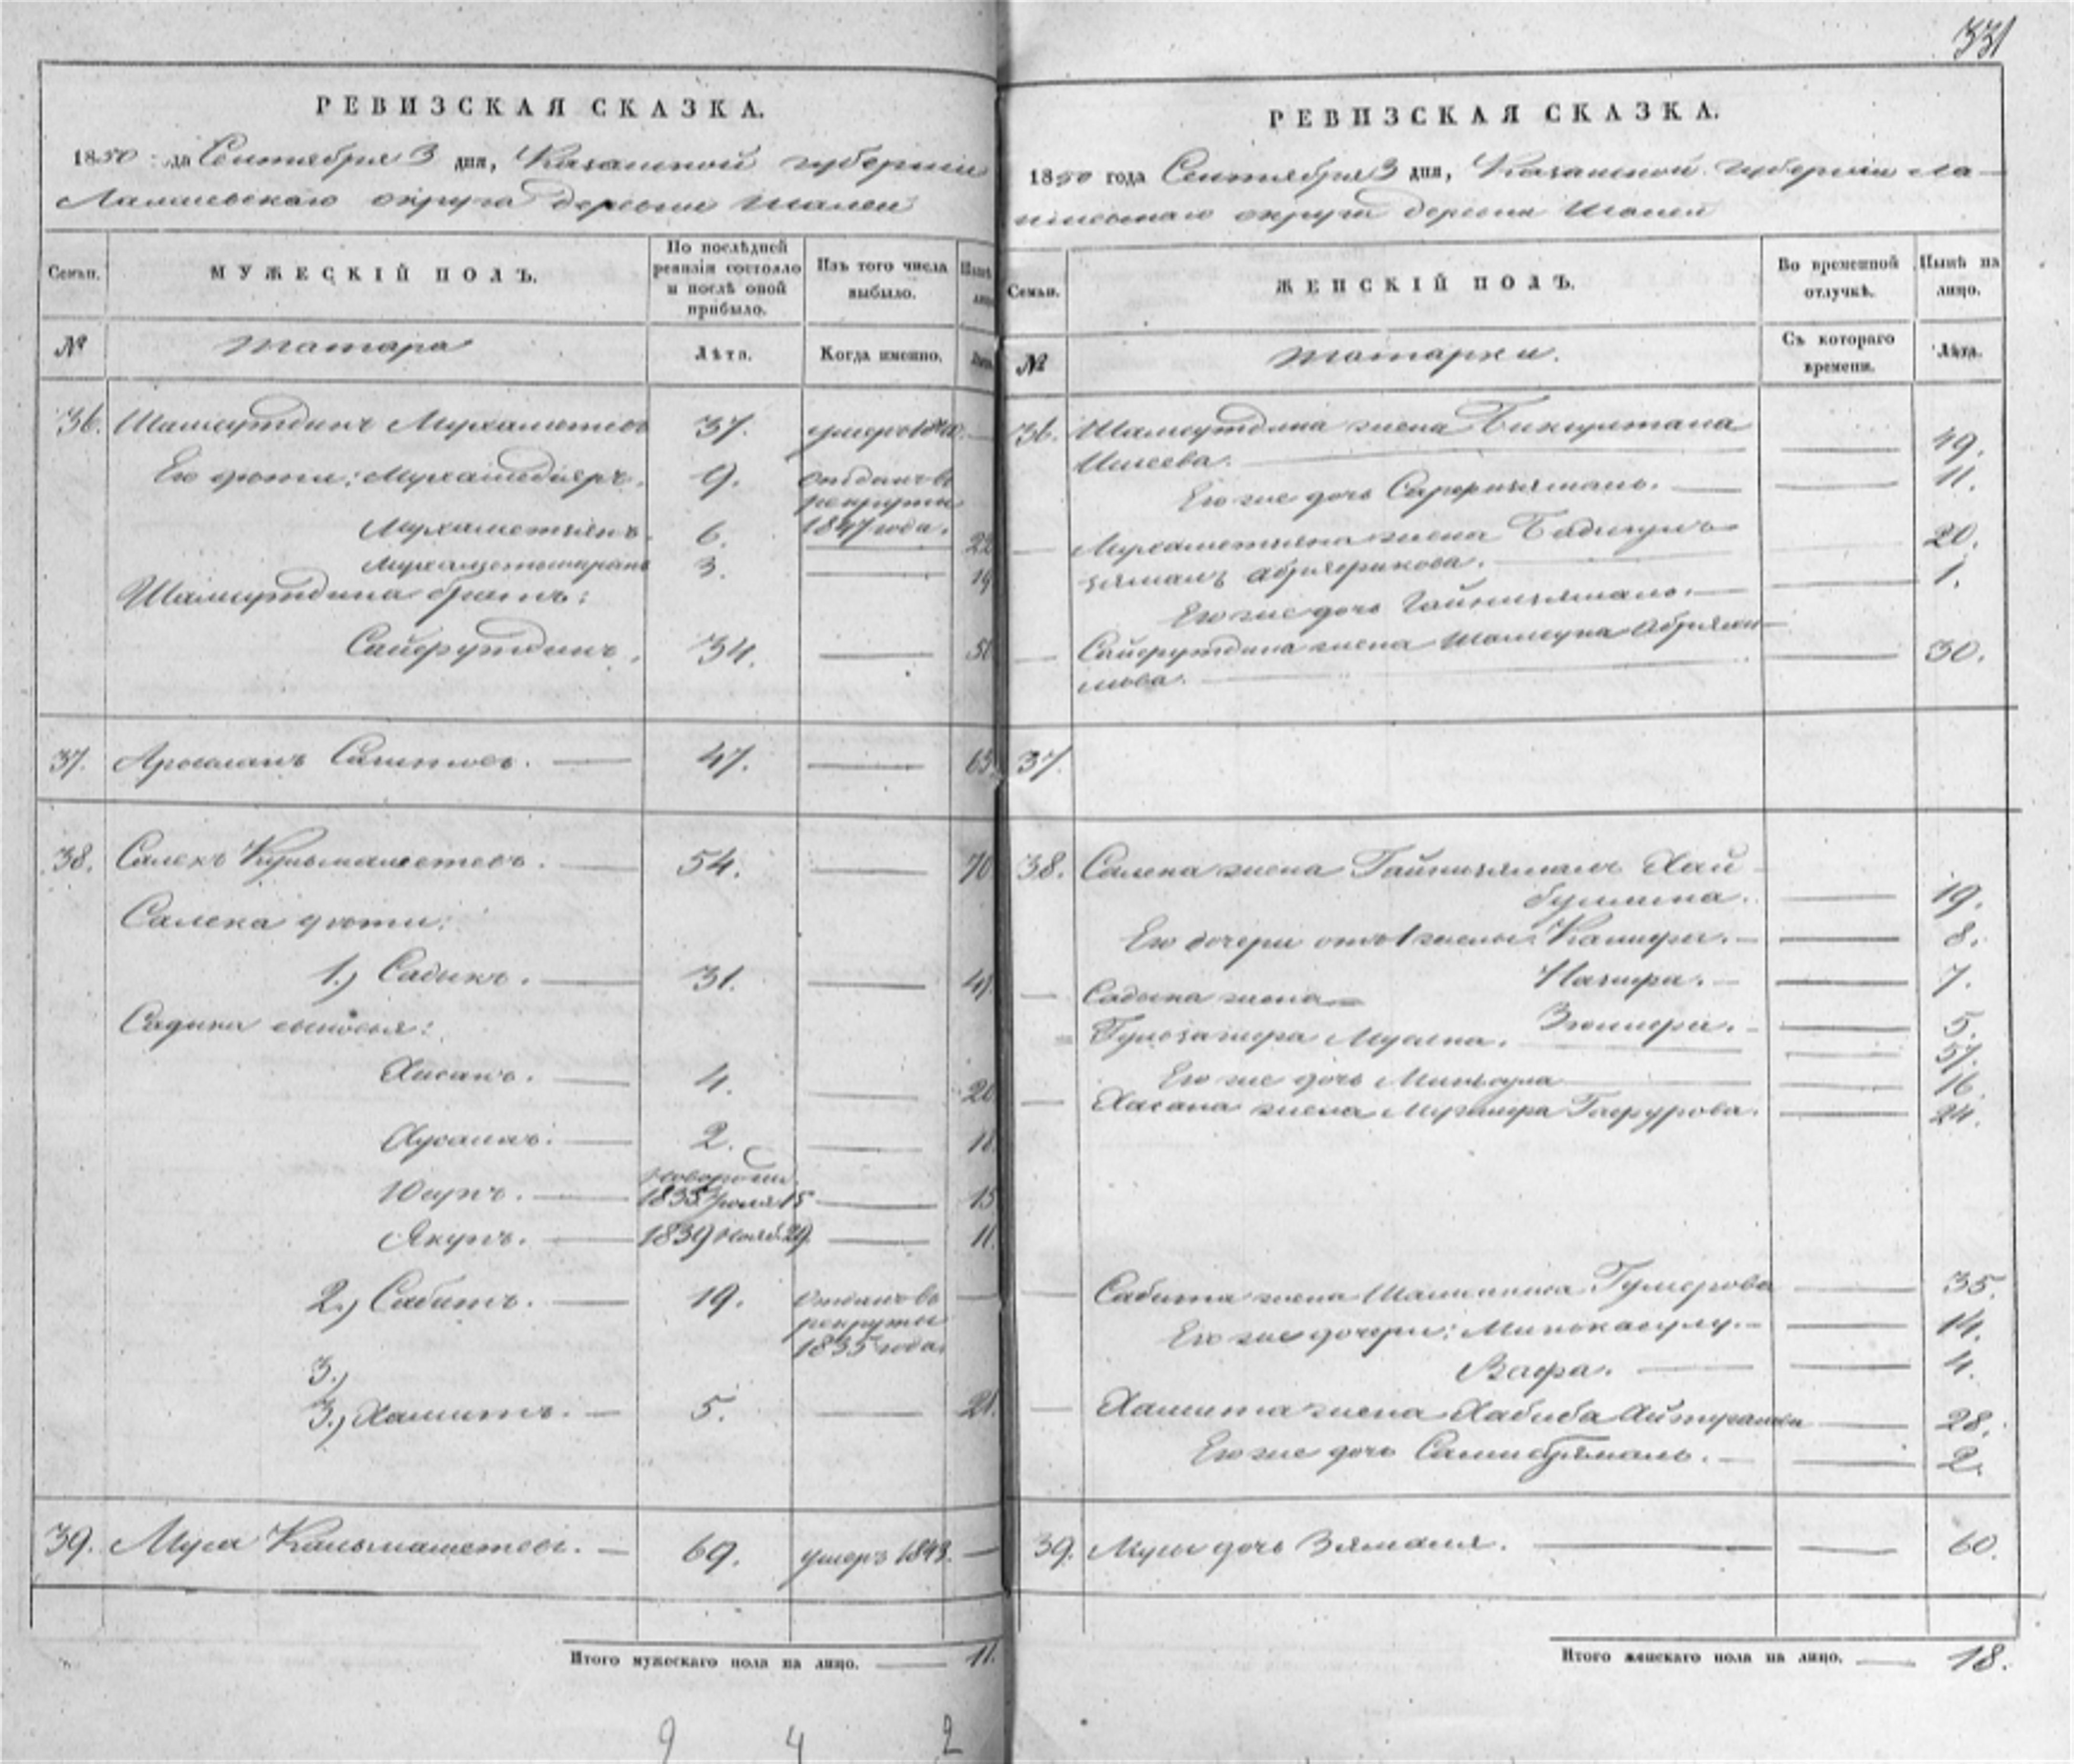 331
РЕВИЗСКАЯ СКАЗКА.
1850 да Сентября 3 дня, Казанской губернии
Лаишевскаго округа деревни Шалей
Семьи.
МУЖЕСКІЙ ПОЛЪ.
По послѣдней
ревизіи состояло
и послѣ оной
прибыло.
Изъ того числа
выбыло.
№
татара
Лѣта.
Когда именно.
36. Шамсутдинъ Мухаметевъ 37. умеръ
Его дѣти: Мухамедьяръ. 9. отданъ въ
рекруты
1847 года.
Мухаметзянъ. 6. 22
3. 19
Шамсутдина братъ:
Сайфутдинъ. 34. 50
37. Арсланъ Сагитовъ. 47. 63.
38. Салехъ Кульмаметевъ. 54. 70
Салеха дѣти:
1.) Садыкъ. 31. 47.
Садыка сыновья:
Хасанъ. 4. 20
Хусаинъ. 2. 18
новорожд.
Юсупъ. 1835 Іюля 15 15
Якупъ. 1839 Нояб. 29. 11.
2.) Сабитъ. 19. отданъ въ
рекруты
1835 года.
3.)
3.) Хамитъ. 5. 21.
39. Муса Кальмаметевъ. 69. умеръ 1843.
Итого мужескаго пола на лицо. 11.
9 4 2
РЕВИЗСКАЯ СКАЗКА.
1850 года Сентября 3 дня, Казанской губерніи Ла-
ишевскаго округа деревни Шалей
Семьи.
ЖЕНСКІЙ ПОЛЪ.
Во временной
отлучкѣ.
Нынѣ на
лицо.
№
татарки.
Съ котораго
времени.
Лѣта.
36. Шамсутдина жена Бикултана
49.
Его же дочь Сарфизямалъ. 11.
Мухаметзяна жена Бадигулъ 20.
зямалъ
Его же дочь Гайнизямалъ. 1.
Сайфутдина жена Шамсука Абряхи-
мова. 30.
37.
38. Салеха жена Гайнизямалъ Хай
буллина. 19.
Его дочери отъ 1 жены: Камифа. 8.
Назифа. 7.
Садыка жена
Зюлифа. 5.
Гульзаифа Мусина. 57.
Его же дочь 16.
Хасана жена Гафурова. 24.
Сабита жена Гумерова 35.
Его же дочери: Минькасулу. 14.
Вафа. 4.
Хамита жена Хабиба Айтуганова 28.
Его же дочь 2.
39. Мусы дочь Зямалия. 60.
Итого женскаго пола на лицо. 18.